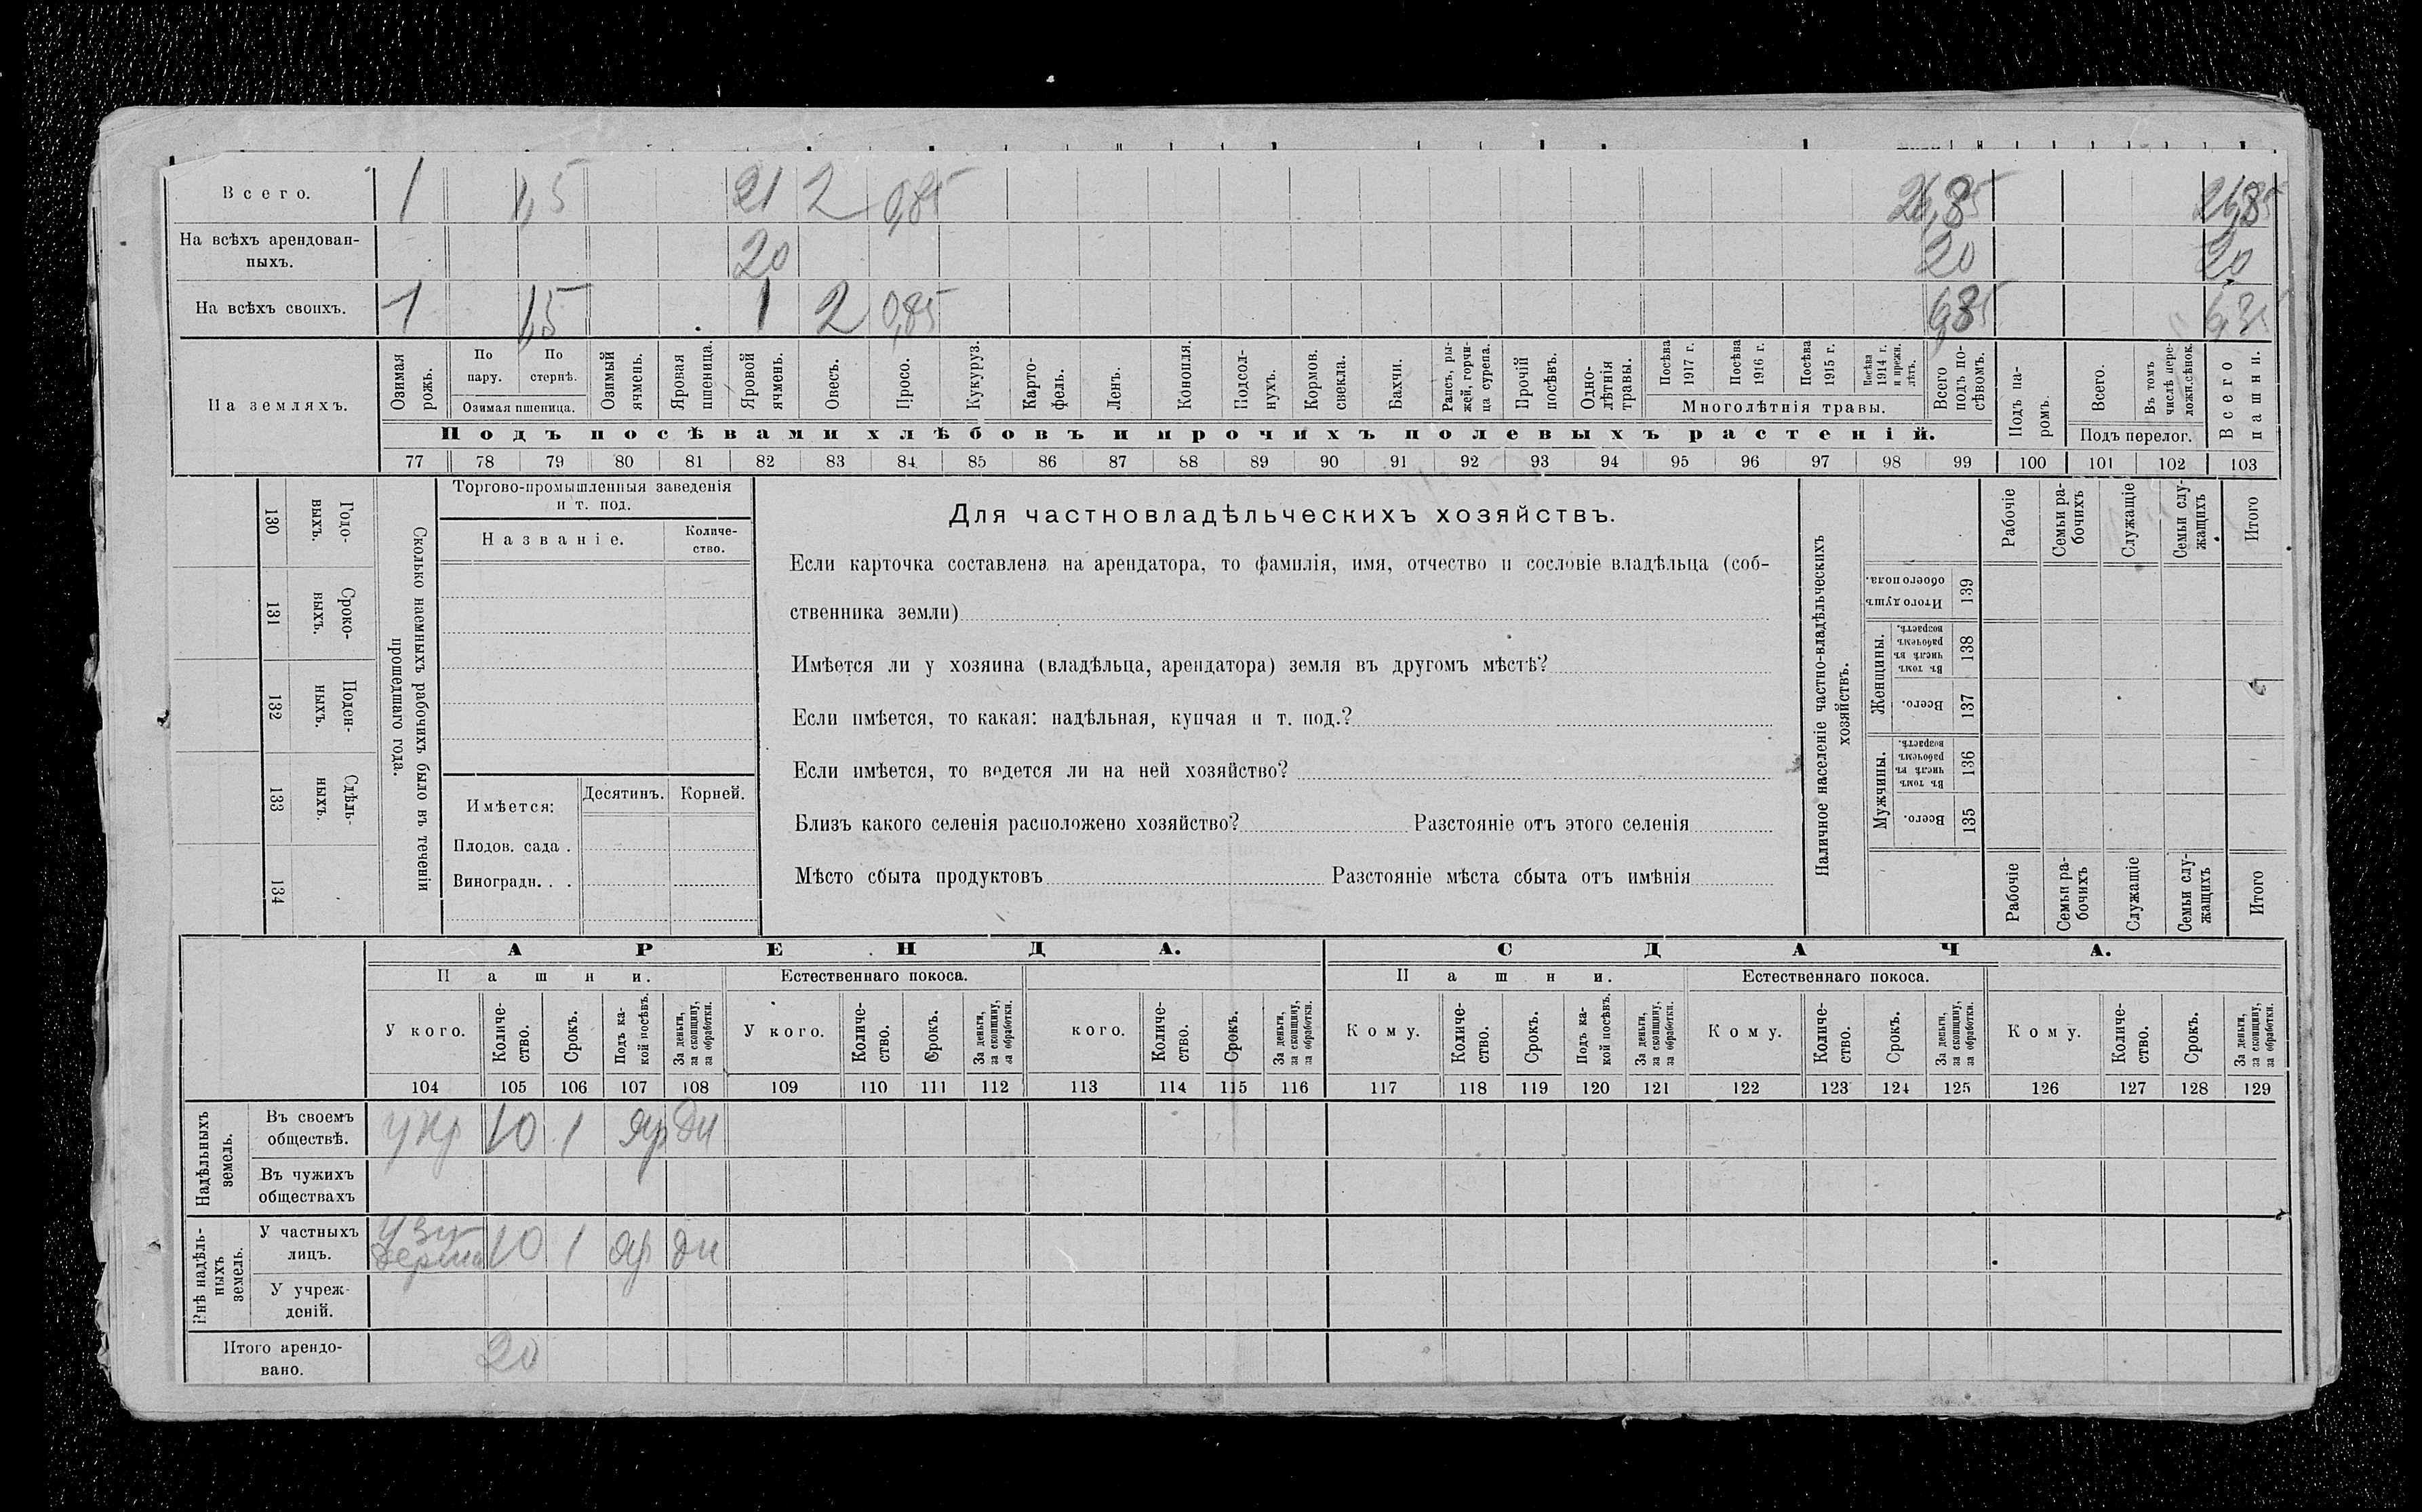 Всего. 1 1,5 21 2 0,85 26,85 26,85
На всѣхъ арендован-
ныхъ. 20 20 20
На всѣхъ своихъ. 1 1,5 1 2 0,85 6,85
На земляхъ.
Озимая рожь.
По пару.
По стернѣ.
Озимая пшеница.
Озимый ячмень.
Яровая пшеница.
Яровой ячмень.
Овесъ.
Просо.
Кукуруз.
Карто-
фель.
Ленъ.
Конопля.
Подсол-
нухъ.
Кормов. свекла.
Бахчи.
Рапсъ, ры-
жей, горчи-
ца сурепа.
Прочій посѣвъ.
Одно-
лѣтнія травы.
Посѣва 1917 г.
Посѣва 1916 г.
Посѣва 1915 г.
Посѣва 1914 г. и прежн. лѣтъ.
Многолѣтнія травы.
Всего подъ по-
сѣвомъ.
Подъ па-
ромъ.
Всего.
Въ томъ числѣ пере-
ложн.сѣнок.
Подъ перелог.
Всего пашни.
Подъ посѣвами хлѣбовъ и прочихъ полевыхъ растеній.
77 78 79 80 81 82 83 84 85 86 87 88 89 90 91 92 93 94 95 96 97 98 99 100 101 102 103
130 Годо-
ныхъ.
131 Сроко-
ныхъ.
132 Поден-
ныхъ.
133 Сдѣль-
ныхъ.
134
Сколько наемныхъ рабочихъ было въ теченіи
прошедшаго года.
Торгово-промышленныя заведенія
и т. под.
Названіе.
Количе-
ство.
Имѣется: Десятинъ. Корней.
Плодов. сада .
Виноградн. . .
Для частновладѣльческихъ хозяйствъ.
Если карточка составлена на арендатора, то фамилія, имя, отчество и сословіе владѣльца (соб-
ственника земли)
Имѣется ли у хозяина (владѣльца, арендатора) земля въ другомъ мѣстѣ?
Если имѣется, то какая: надѣльная, купчая и т. под.?
Если имѣется, то ведется ли на ней хозяйство?
Близъ какого селенія расположено хозяйство? Разстояніе отъ этого селенія
Мѣсто сбыта продуктовъ Разстояніе мѣста сбыта отъ имѣнія
Наличное населеніе частно-владѣльческихъ
хозяйствъ.
Рабочіе
Семьи ра-
бочихъ
Служащіе
Семьи слу-
жащихъ
Итого
Итого душъ обоего пола. 139
Женщины.
Въ томъ числѣ въ рабочемъ возрастѣ. 138
Всего. 137
Мужчины.
Въ томъ числѣ въ рабочемъ возрастѣ. 136
Всего. 135
Рабочіе
Семьи ра-
бочихъ
Служащіе
Семьи слу-
жащихъ
Итого
АРЕНДА. СДАЧА.
Пашни. Естественнаго покоса. Пашни. Естественнаго покоса.
У кого. Количе-
ство. Срокъ. Подъ ка-
кой посѣвъ. За деньги, за скопщину, за обработки.
У кого. Количе-
ство. Срокъ. За деньги, за скопщину, за обработки.
кого. Количе-
ство. Срокъ. За деньги, за скопщину, за обработки.
Кому. Количе-
ство. Срокъ. Подъ ка-
кой посѣвъ. За деньги, за скопщину, за обработки.
Кому. Количе-
ство. Срокъ. За деньги, за скопщину, за обработки.
Кому. Количе-
ство. Срокъ. За деньги, за скопщину, за обработки.
104 105 106 107 108 109 110 111 112 113 114 115 116 117 118 119 120 121 122 123 124 125 126 127 128 129
Надѣльныхъ земель.
Въ своемъ
обществѣ. у кр 10 1 яр ди
Въ чужихъ
обществахъ
Внѣ надѣль-
ныхъ земель.
У частныхъ
лицъ. 10 1 яр ди
У учреж-
деній.
Итого арендо-
вано. 20